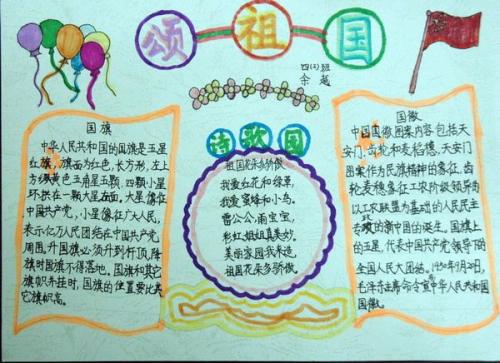 颂祖国
四(2)班
余越
国旗
中华人民共和国的国旗是五星
红旗，旗面为红色，长方形，左上
方缀黄色五角星五颗，四颗小星
环拱在一颗大星左面，大星像征
中国共产党，小星像征广大人民，
表示亿万人民团结在中国共产党
周围，升国旗必须升到杆顶，降
旗时国旗不得落地。国旗和其它
旗帜并挂时，国旗的位置要比其
它旗帜高。
诗歌园
祖国花朵多骄傲
我爱红花和绿草，
我爱蜜蜂和小鸟。
雷公公，雨宝宝，
彩虹姐姐真美妙。
美丽家园我来造，
祖国花朵多骄傲。
国徽
中国国徽图案内容包括天
安门、齿轮和麦稻穗，天安门
图案作为民族精神的象征，齿
轮麦穗象征工农阶级领导的
以工农联盟为基础的人民民主
专政的新中国的诞生。国旗上
的五星，代表中国共产党领导下的
全国人民大团结。1950年9月20日，
毛泽东主席命令宣中华人民共和国
国徽。